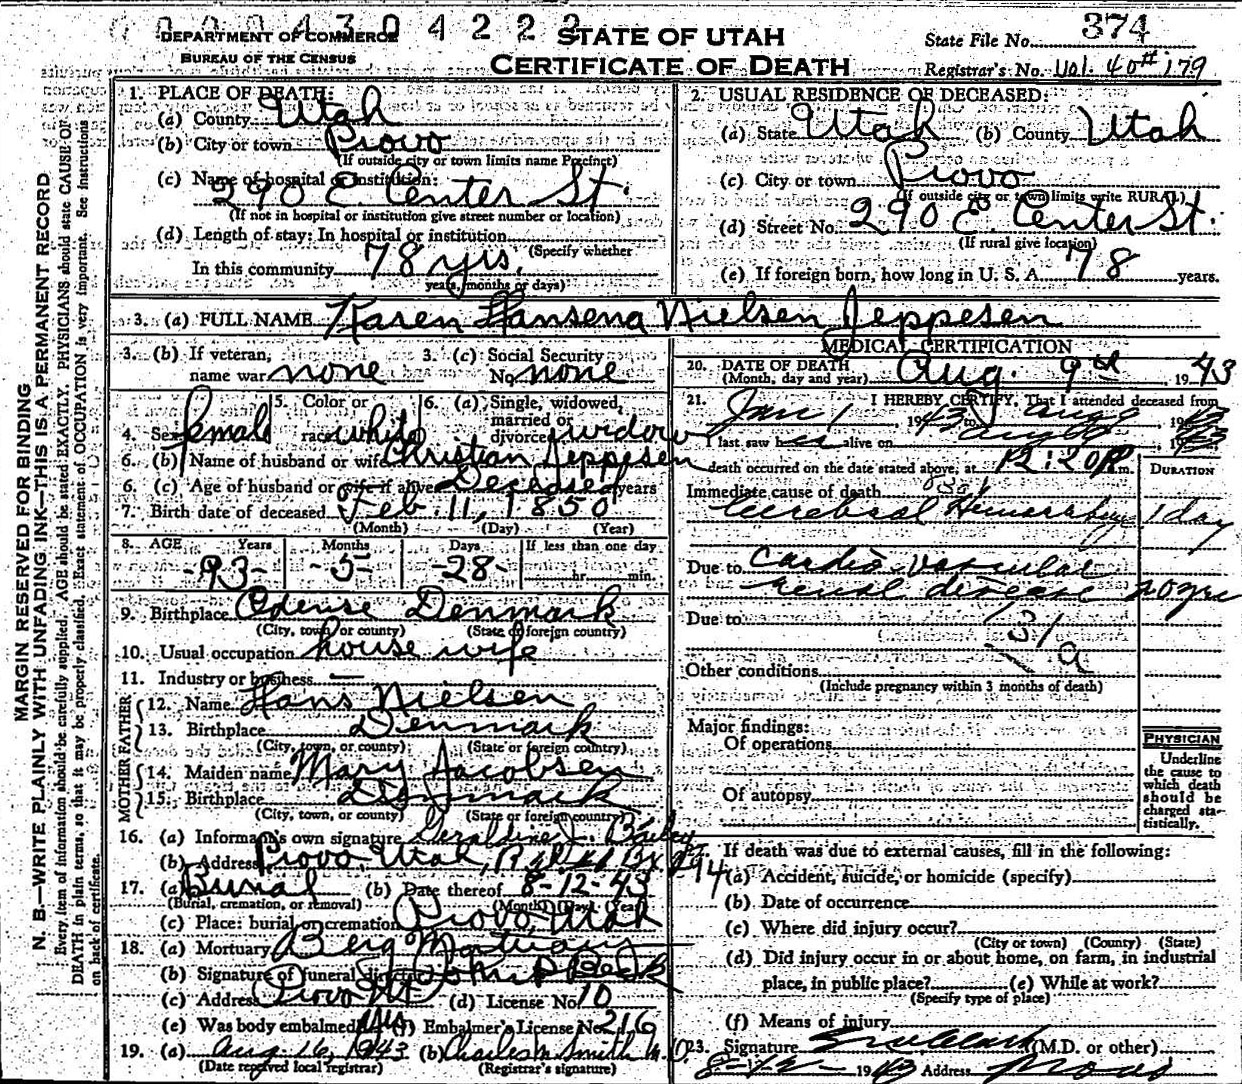 0 0 0 0 4 3 0 4 2 2 2
DEPARTMENT OF COMMERCE
BUREAU OF THE CENSUS
STATE OF UTAH
CERTIFICATE OF DEATH
State File No. 374
Registrar's No. Vol. 40 # 179
MARGIN RESERVED FOR BINDING
N. B.—WRITE PLAINLY WITH UNFADING INK—THIS IS A PERMANENT RECORD
Every item of information should be carefully supplied. AGE should be stated EXACTLY. PHYSICIANS should state CAUSE OF
DEATH in plain terms, so that it may be properly classified. Exact statement of OCCUPATION is very important. See instructions
on back of certificate.
1. PLACE OF DEATH:
(a) County Utah
(b) City or town Provo
(If outside city or town limits name Precinct)
(c) Name of hospital or institution:
290 E. Center St.
(If not in hospital or institution give street number or location)
(d) Length of stay: In hospital or institution
(Specify whether
In this community 78 yrs.
years, months or days)
2. USUAL RESIDENCE OF DECEASED:
(a) State Utah (b) County Utah
(c) City or town Provo
(If outside city or town limits write RURAL)
(d) Street No. 290 E. Center St.
(If rural give location)
(e) If foreign born, how long in U. S. A. 78 years.
3. (a) FULL NAME Karen Hansena Nielsen Jeppesen
3. (b) If veteran, name war none
3. (c) Social Security No. none
4. Sex female
5. Color or race white
6. (a) Single, widowed, married or divorced widow
6. (b) Name of husband or wife Christian Jeppesen
6. (c) Age of husband or wife if alive Deceased years
7. Birth date of deceased Feb. 11, 1850
(Month) (Day) (Year)
8. AGE Years Months Days If less than one day
-93- -5- -28- hr. min.
9. Birthplace Odense Denmark
(City, town, or county) (State or foreign country)
10. Usual occupation house wife
11. Industry or business —
FATHER
12. Name Hans Nielsen
13. Birthplace Denmark
(City, town, or county) (State or foreign country)
MOTHER
14. Maiden name Mary Jacobsen
15. Birthplace Denmark
(City, town, or county) (State or foreign country)
16. (a) Informant's own signature Geraldine J. Bailey
(b) Address Provo Utah, R.d. #1 Bx 294
17. (a) Burial (b) Date thereof 8-12-43
(Burial, cremation, or removal) (Month) (Day) (Year)
(c) Place: burial or cremation Provo Utah
18. (a) Mortuary Berg Mortuary
(b) Signature of funeral director John P Beck
(c) Address Provo Ut (d) License No. 10
(e) Was body embalmed yes (f) Embalmer's License No. 216
19. (a) Aug 16, 1943 (b) Charles M Smith M.D.
(Date received local registrar) (Registrar's signature)
MEDICAL CERTIFICATION
20. DATE OF DEATH
(Month, day and year) Aug. 9 1943
21. I HEREBY CERTIFY, That I attended deceased from
Jan 1 1943 to Aug 9 1943
I last saw her alive on Aug 9 1943
death occurred on the date stated above, at 12:20 P.m.
DURATION
Immediate cause of death
Cerebral Hemorrhage 1 day
Due to Cardio vascular
renal disease 20 yrs
Due to
131
a
Other conditions
(Include pregnancy within 3 months of death)
Major findings:
Of operations
Of autopsy
PHYSICIAN
Underline
the cause to
which death
should be
charged sta-
tistically.
If death was due to external causes, fill in the following:
(a) Accident, suicide, or homicide (specify)
(b) Date of occurrence
(c) Where did injury occur?
(City or town) (County) (State)
(d) Did injury occur in or about home, on farm, in industrial
place, in public place? (e) While at work?
(Specify type of place)
(f) Means of injury
23. Signature Clark (M.D. or other)
8-12- 1943 Address Provo